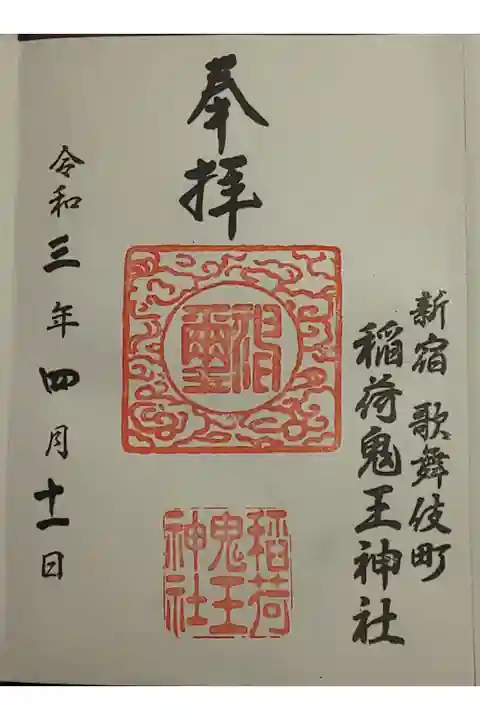 新宿 歌舞伎町
稲荷鬼王神社
奉拝
稲荷
鬼王
神社
令和三年四月十一日